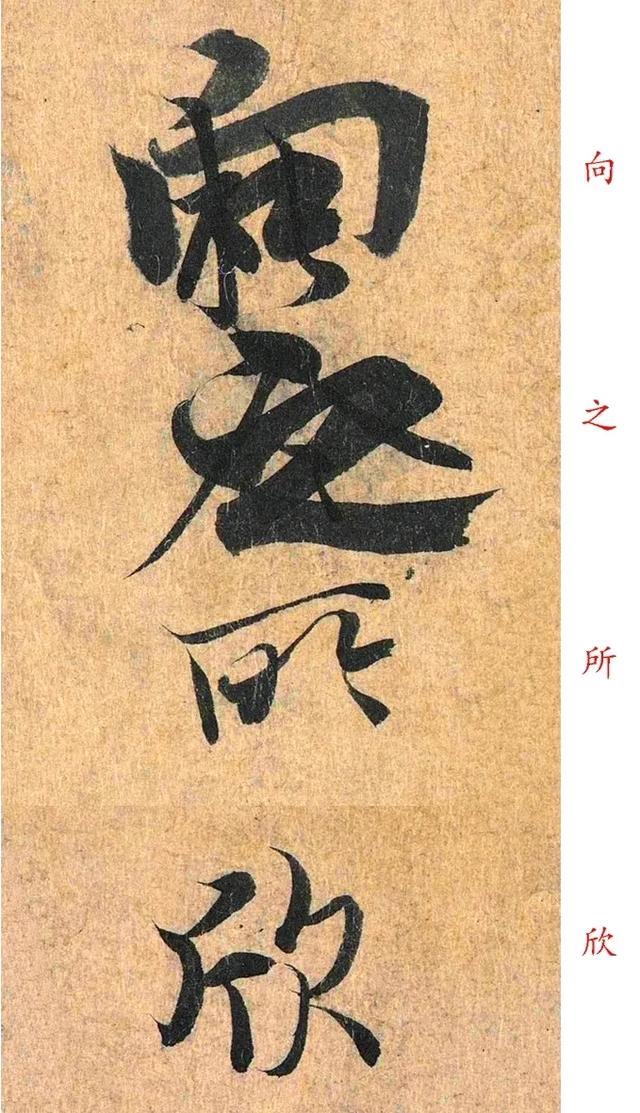 向之所欣
向
之
所
欣